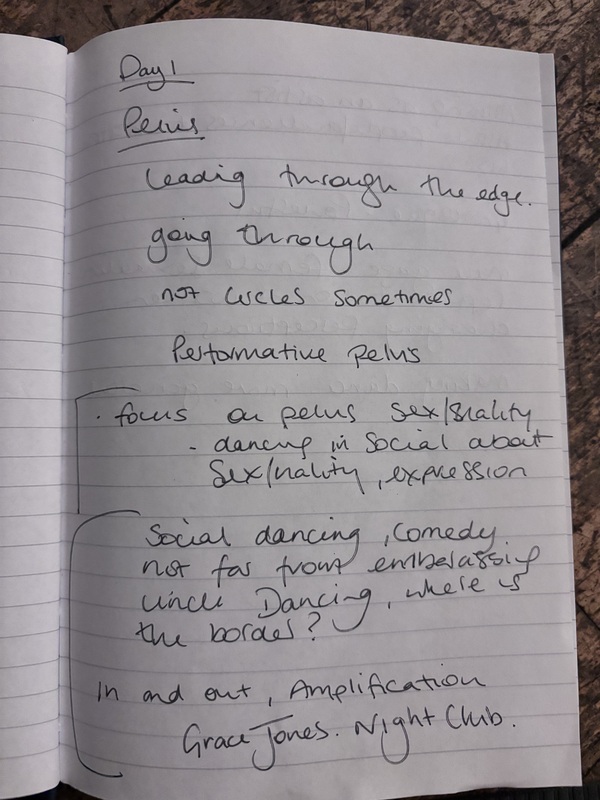 Day 1
Pelvis
leading through the edge.
going through
not circles sometimes
Performative pelvis
· focus on pelvis sex/uality
- dancing in social about
sex/uality, expression
Social dancing, comedy.
not far from embarassing
uncle Dancing, where is
the border?
In and out, Amplification
Grace Jones. Night Club.